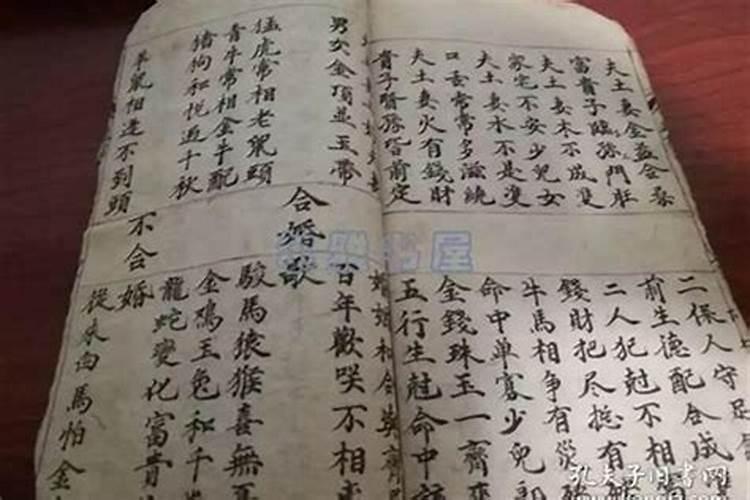 夫土妻金益合
富貴子臨孫門旺
夫土妻木不成雙
家宅不安少兒女
夫土妻水不是雙
口舌常常多滋繞
夫土妻火有錢財
貴子賢孫皆前定
二保人守足
前生德配合成
二人犯尅不相
錢財把尽總有
牛馬相争有災
命中单寡少兒郎
金錢珠玉一齊來
五行生尅命中
婚姻和合
男女金頂並玉帶
百年歡咲不相
合婚歌
猛虎常相老鼠頭
駿馬猿猴喜無
青牛常相金牛配
金鸡玉兔和千
猪狗和悦过千秋
龍蛇變化富貴
不合婚
羊鼠相逢不到頭
從来白馬怕金
书屋
孔夫子旧书网